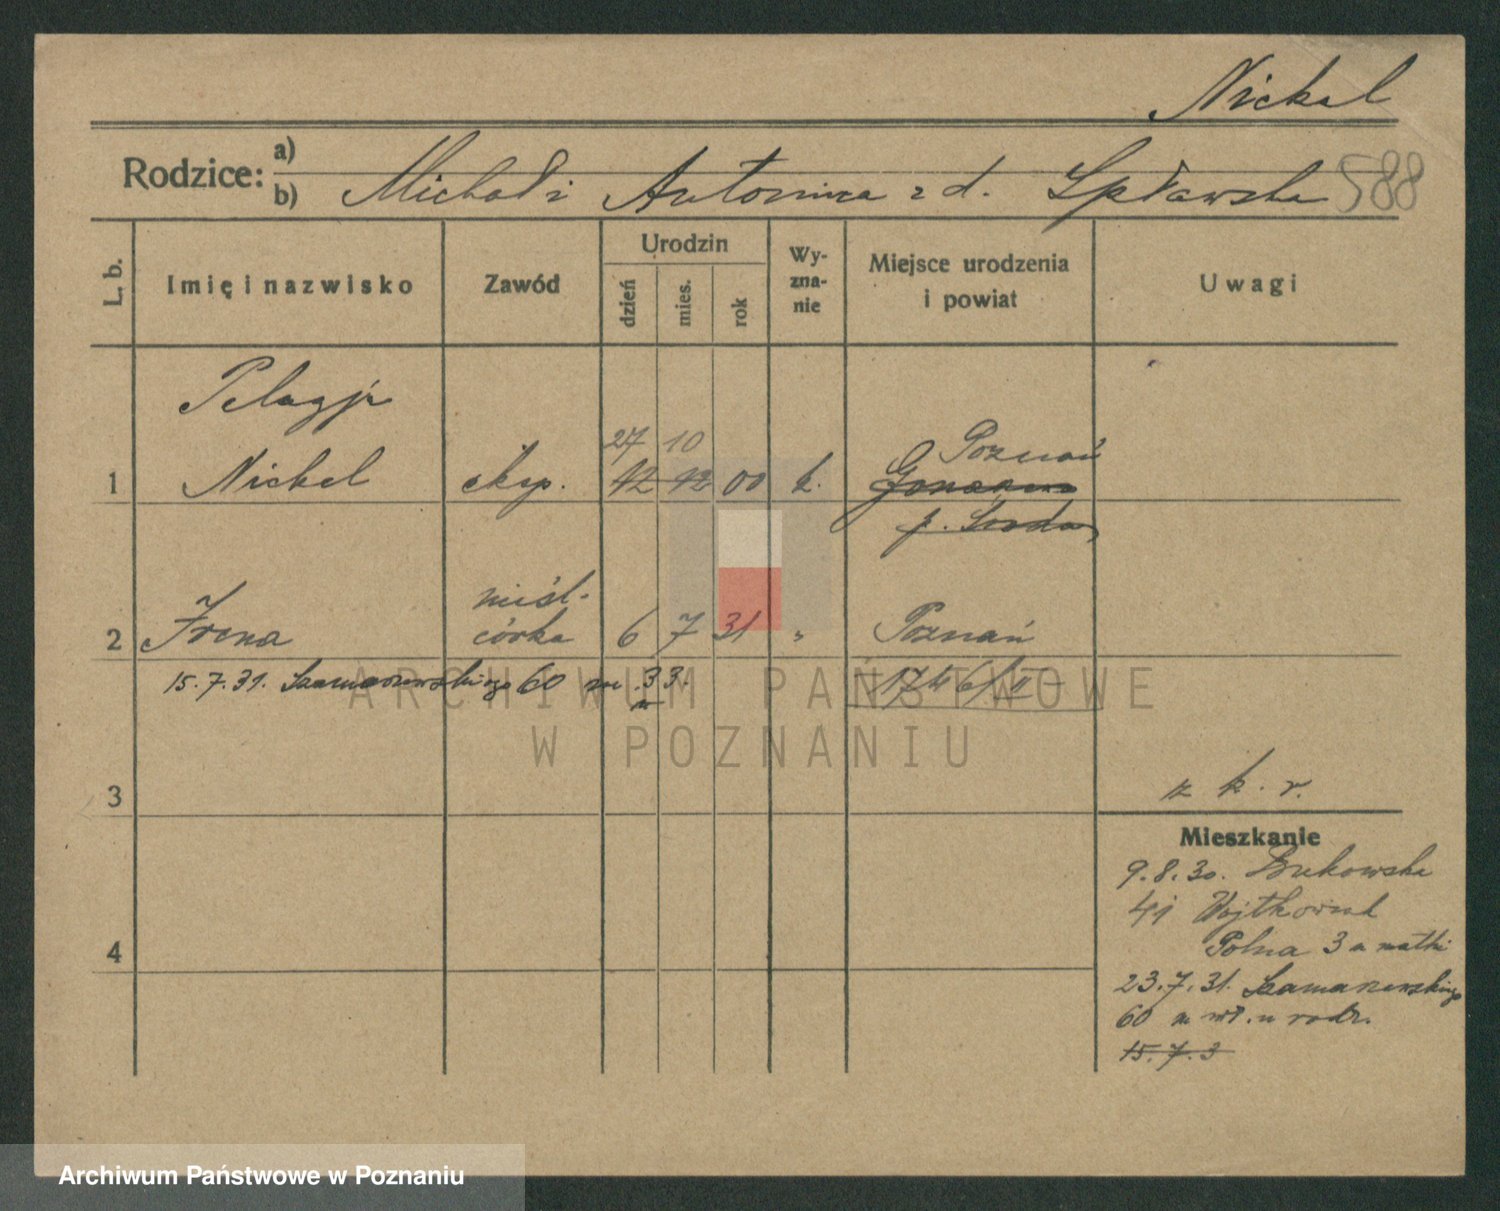 Nickel
Rodzice: a)
b) Michał i Antonina z d. Spławska 588
L. b.
Imię i nazwisko
Zawód
Urodzin
dzień
mies.
rok
Wy-
zna-
nie
Miejsce urodzenia
i powiat
Uwagi
Pelagja
27 10
Poznań
1 Nickel eksp. 12 12 00 k.
nieśl.
2 Irena córka 6 7 31 " Poznań
15.7.31. Szamarzewskiego 60 m. 33.
1746/II
3
z k. r.
Mieszkanie
9.8.30. Bukowska
41 Wojtkowiak
Polna 3 u matki
23.7.31. Szamarzewskiego
60 m wł. u rodz.
15.7.3
4
ARCHIWUM PAŃSTWOWE
W POZNANIU
Archiwum Państwowe w Poznaniu